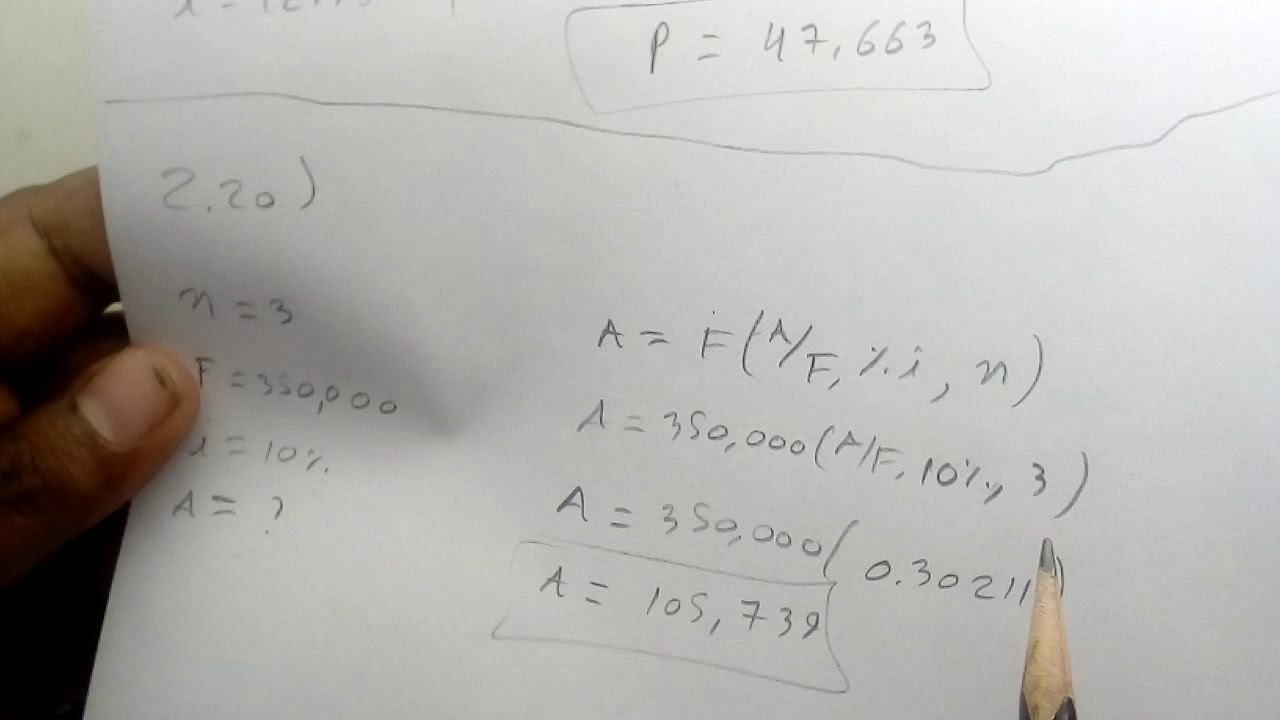 P = 47,663
2.20)
n = 3
F = 350,000
i = 10%
A = ?
A = F(A/F, %i, n)
A = 350,000(A/F, 10%, 3)
A = 350,000(0.30211)
A = 105,739